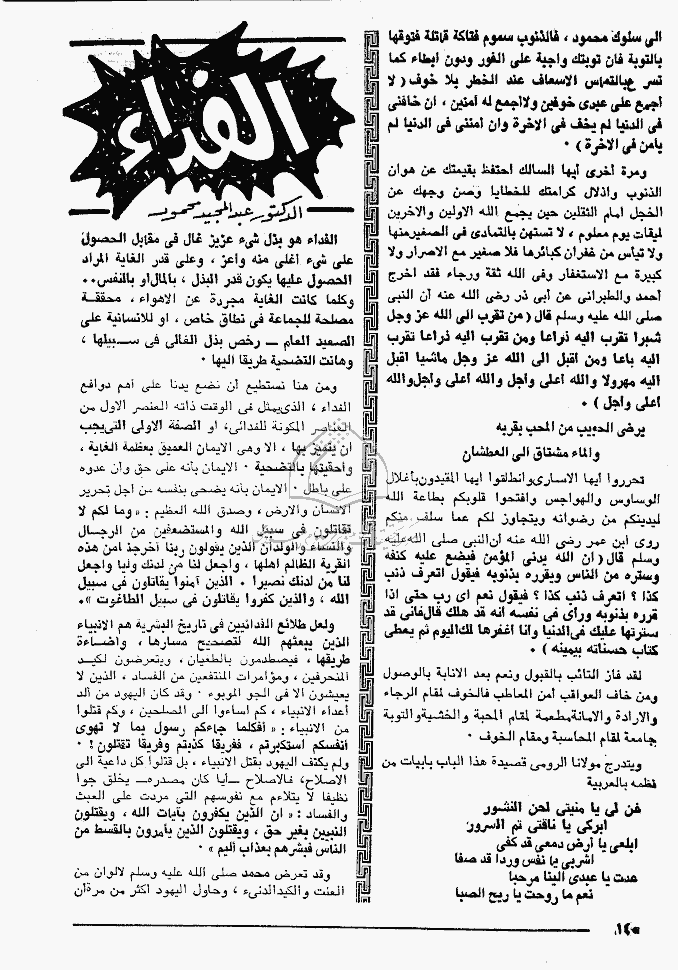 الى سلوك محمود ، فالذنوب سموم فتاكة قاتلة فتوقها
بالتوبة فان توبتك واجبة على الفور ودون ابطاء كما
تسرع بالتماس الاسعاف عند الخطر بلا خوف ( لا
أجمع على عبدى خوفين ولا أجمع له أمنين ، ان خافنى
فى الدنيا لم يخف فى الاخرة وان أمننى فى الدنيا لم
يأمن فى الاخرة ) ٠
ومرة أخرى أيها السالك احتفظ بقيمتك عن هوان
الذنوب واذلال كرامتك للخطايا وصن وجهك عن
الخجل امام الثقلين حين يجمع الله الاولين والاخرين
لميقات يوم معلوم ، لا تستهن بالتمادى فى الصغير منها
ولا تيأس من غفران كبائرها فلا صغير مع الاصرار ولا
كبيرة مع الاستغفار وفى الله ثقة ورجاء فقد اخرج
أحمد والطبرانى عن أبى ذر رضى الله عنه أن النبى
صلى الله عليه وسلم قال ( من تقرب الى الله عز وجل
شبرا تقرب اليه ذراعا ومن تقرب اليه ذراعا تقرب
اليه باعا ومن اقبل الى الله عز وجل ماشيا اقبل
اليه مهرولا والله أعلى وأجل والله أعلى وأجل والله
أعلى وأجل ) ٠
يرضى الحبيب من المحب بقربه
والماء مشتاق الى العطشان
تحرروا أيها الاسارى وانطلقوا ايها المقيدون بأغلال
الوساوس والهواجس وافتحوا قلوبكم بطاعة الله
ليدينكم من رضوانه ويتجاوز لكم عما سلف منكم
روى ابن عمر رضى الله عنه أن النبى صلى الله عليه
وسلم قال ( ان الله يدنى المؤمن فيضع عليه كنفه
وستره من الناس ويقرره بذنوبه فيقول اتعرف ذنب
كذا ؟ أتعرف ذنب كذا ؟ فيقول نعم اى رب حتى اذا
قرره بذنوبه ورأى فى نفسه انه قد هلك قال فانى قد
سترتها عليك فى الدنيا وانا أغفرها لك اليوم ثم يعطى
كتاب حسناته بيمينه ) ٠
لقد فاز التائب بالقبول ونعم بعد الانابة بالوصول
ومن خاف العواقب أمن المعاطب فالخوف لمقام الرجاء
والارادة والامانة مطعمة لمقام المحبة والخشية والتوبة
جامعة لمقام المحاسبة ومقام الخوف ٠
ويتدرج مولانا الرومى قصيدة هذا الباب بابيات من
نظمه بالعربية
غن لى يا منيتى لحن النشور
ابركى يا ناقتى تم السرور
ابلعى يا أرض دمعى قد كفى
اشربى يا نفس وردا قد صفا
عدت يا عيدى الينا مرحبا
نعم ما روحت يا ريح الصبا
الفداء
الدكتور عبد المجيد محمود
الفداء هو بذل شىء عزيز غال فى مقابل الحصول
على شىء أغلى منه وأعز ، وعلى قدر الغاية المراد
الحصول عليها يكون قدر البذل ، بالمال أو بالنفس ٠٠
وكلما كانت الغاية مجردة عن الاهواء ، محققة
مصلحة للجماعة فى نطاق خاص ، او للانسانية على
الصعيد العام ــ رخص بذل الغالى فى سبيلها ،
وهانت التضحية طريقا اليها ٠
ومن هنا نستطيع أن نضع يدنا على أهم دوافع
الفداء ، الذى يمثل فى الوقت ذاته العنصر الاول من
العناصر المكونة للفدائى ، او الصفة الاولى التى يجب
ان يتميز بها ، الا وهى الايمان العميق بعظمة الغاية ،
وأحقيتها بالتضحية ٠ الايمان بأنه على حق وأن عدوه
على باطل ٠ الايمان بأنه يضحى بنفسه من أجل تحرير
الانسان والارض ، وصدق الله العظيم : « وما لكم لا
تقاتلون فى سبيل الله والمستضعفين من الرجال
والنساء والولدان الذين يقولون ربنا أخرجنا من هذه
القرية الظالم أهلها ، واجعل لنا من لدنك وليا واجعل
لنا من لدنك نصيرا ٠ الذين آمنوا يقاتلون فى سبيل
الله ، والذين كفروا يقاتلون فى سبيل الطاغوت » ٠
ولعل طلائع الفدائيين فى تاريخ البشرية هم الانبياء
الذين يبعثهم الله لتصحيح مسارها ، واضاءة
طريقها ، فيصطدمون بالطغيان ، ويتعرضون لكيد
المنحرفين ، ومؤامرات المنتفعين من الفساد ، الذين لا
يعيشون الا فى الجو الموبوء ٠ وقد كان اليهود من ألد
أعداء الانبياء ، كم اساءوا الى المصلحين ، وكم قتلوا
من الانبياء : « أفكلما جاءكم رسول بما لا تهوى
أنفسكم استكبرتم ، ففريقا كذبتم وفريقا تقتلون ! ٠
ولم يكتف اليهود بقتل الانبياء ، بل قتلوا كل داعية الى
الاصلاح ، فالاصلاح ــ أيا كان مصدره ــ يخلق جوا
نظيفا لا يتلاءم مع نفوسهم التى مردت على العبث
والفساد : « ان الذين يكفرون بآيات الله ، ويقتلون
النبيين بغير حق ، ويقتلون الذين يأمرون بالقسط من
الناس فبشرهم بعذاب أليم » ٠
وقد تعرض محمد صلى الله عليه وسلم لالوان من
العنت والكيد الدنىء ، وحاول اليهود اكثر من مرة أن